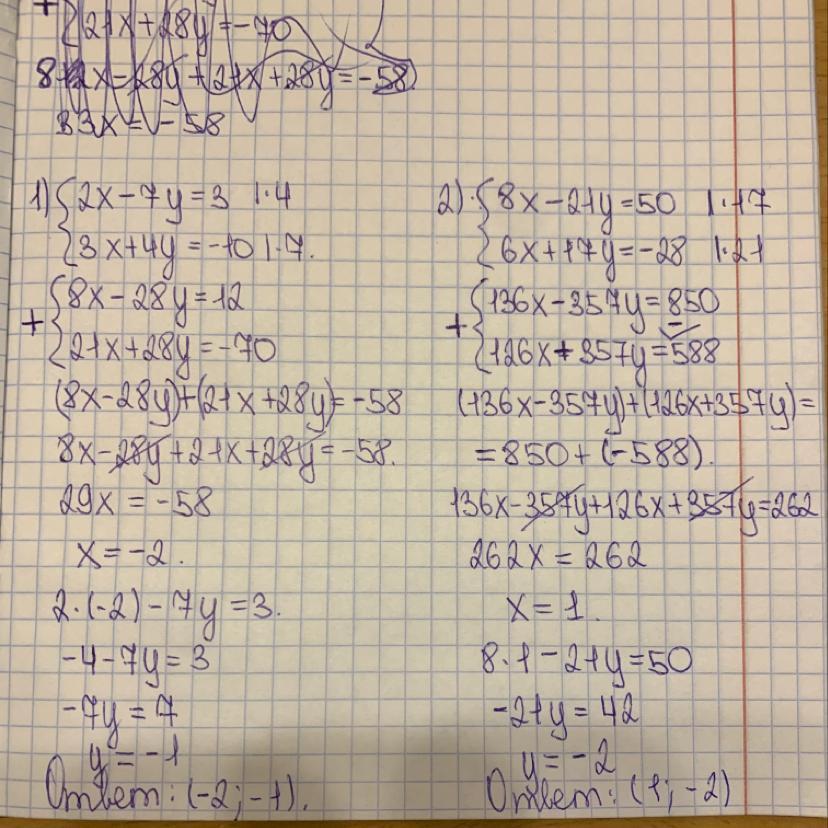 + {21x+28y=-70
8x-28y+21x+28y=-58
33x=-58
1) {2x-7y=3 |·4
{3x+4y=-10 |·7.
+ {8x-28y=12
{21x+28y=-70
(8x-28y)+(21x+28y)=-58
8x-28y+21x+28y=-58.
29x=-58
x=-2.
2·(-2)-7y=3.
-4-7y=3
-7y=7
y=-1
Ответ: (-2;-1).
2) {8x-21y=50 |·17
{6x+17y=-28 |·21
+ {136x-357y=850
{126x+357y=-588
(136x-357y)+(126x+357y)=
=850+(-588).
136x-357y+126x+357y=262
262x=262
x=1.
8·1-21y=50
-21y=42
y=-2
Ответ: (1;-2)